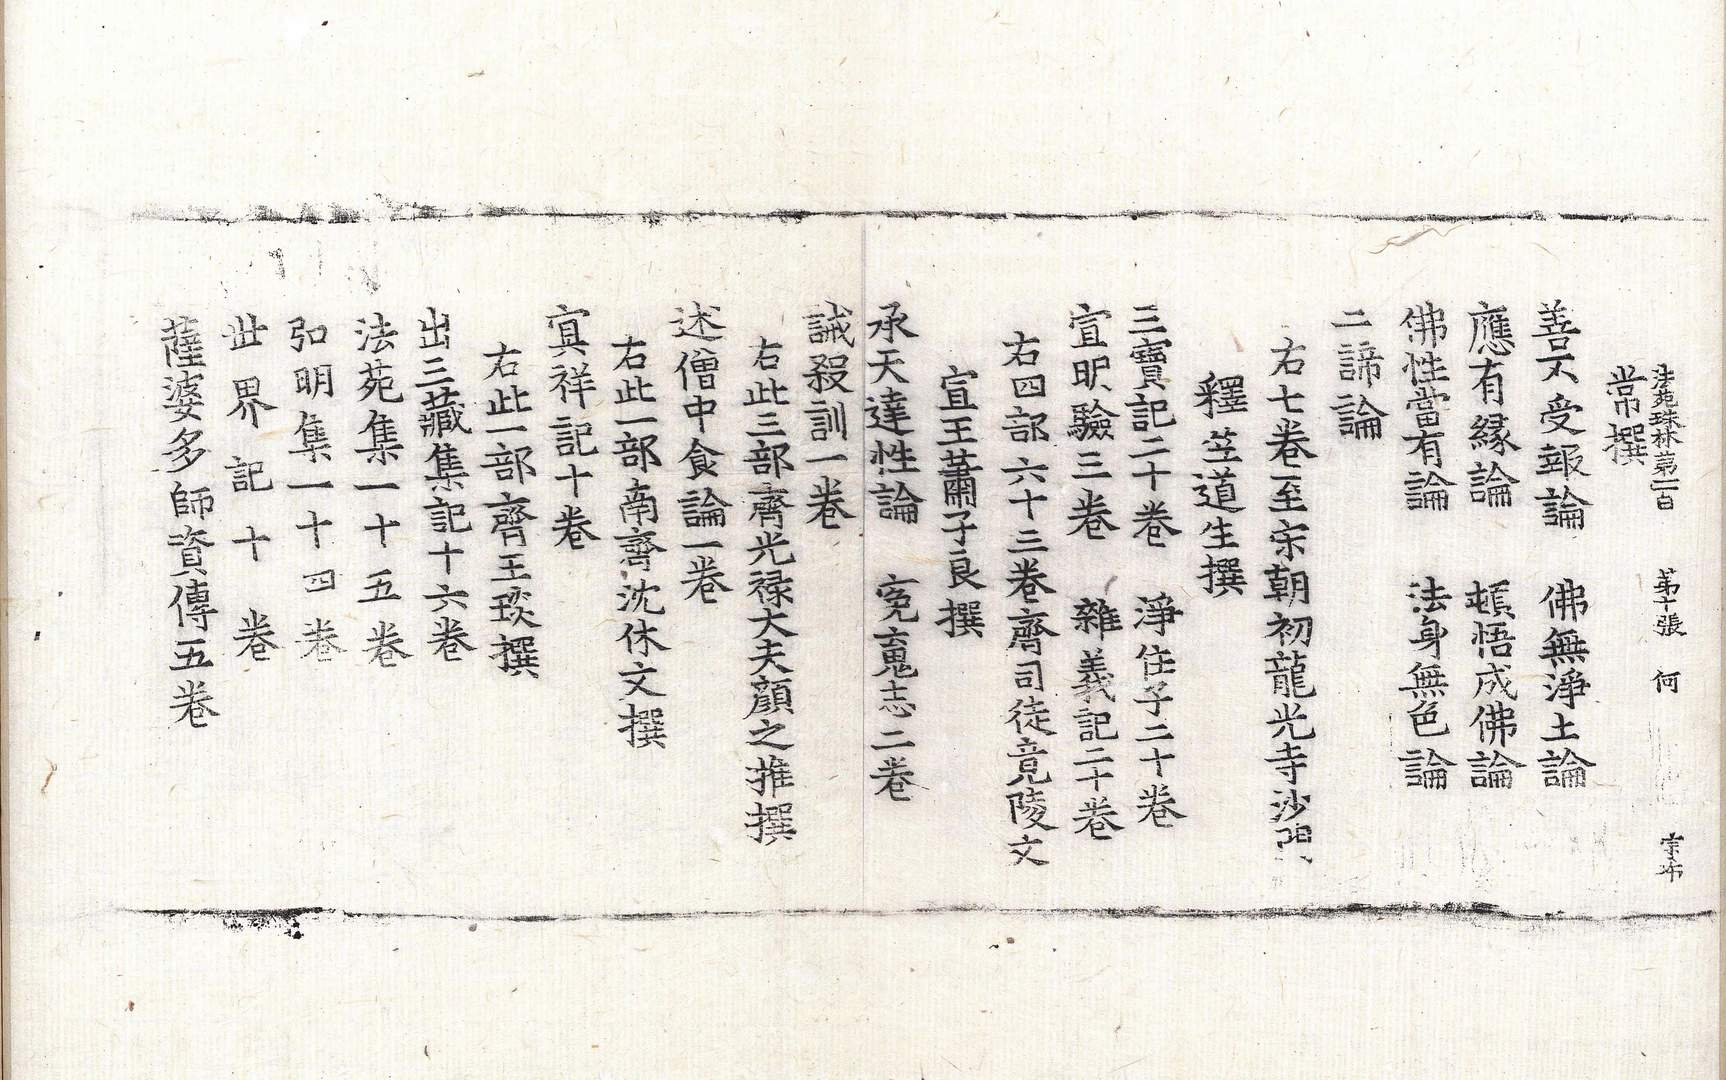 法苑珠林第一百 第十張 何 宗布
常撰
善不受報論 佛無淨土論
應有緣論 頓悟成佛論
佛性當有論 法身無色論
二諦論
右七卷至宋朝初龍光寺沙門
釋竺道生撰
三寶記二十卷 淨住子二十卷
宣明驗三卷 雜義記二十卷
右四部六十三卷齊司徒竟陵文
宣王蕭子良撰
承天達性論 寃䰟志二卷
誡殺訓一卷
右此三部齊光祿大夫顔之推撰
述僧中食論一卷
右此一部南齊沈休文撰
冥祥記十卷
右此一部齊王琰撰
出三藏集記十六卷
法苑集一十五卷
弘明集一十四卷
世界記十卷
薩婆多師資傳五卷